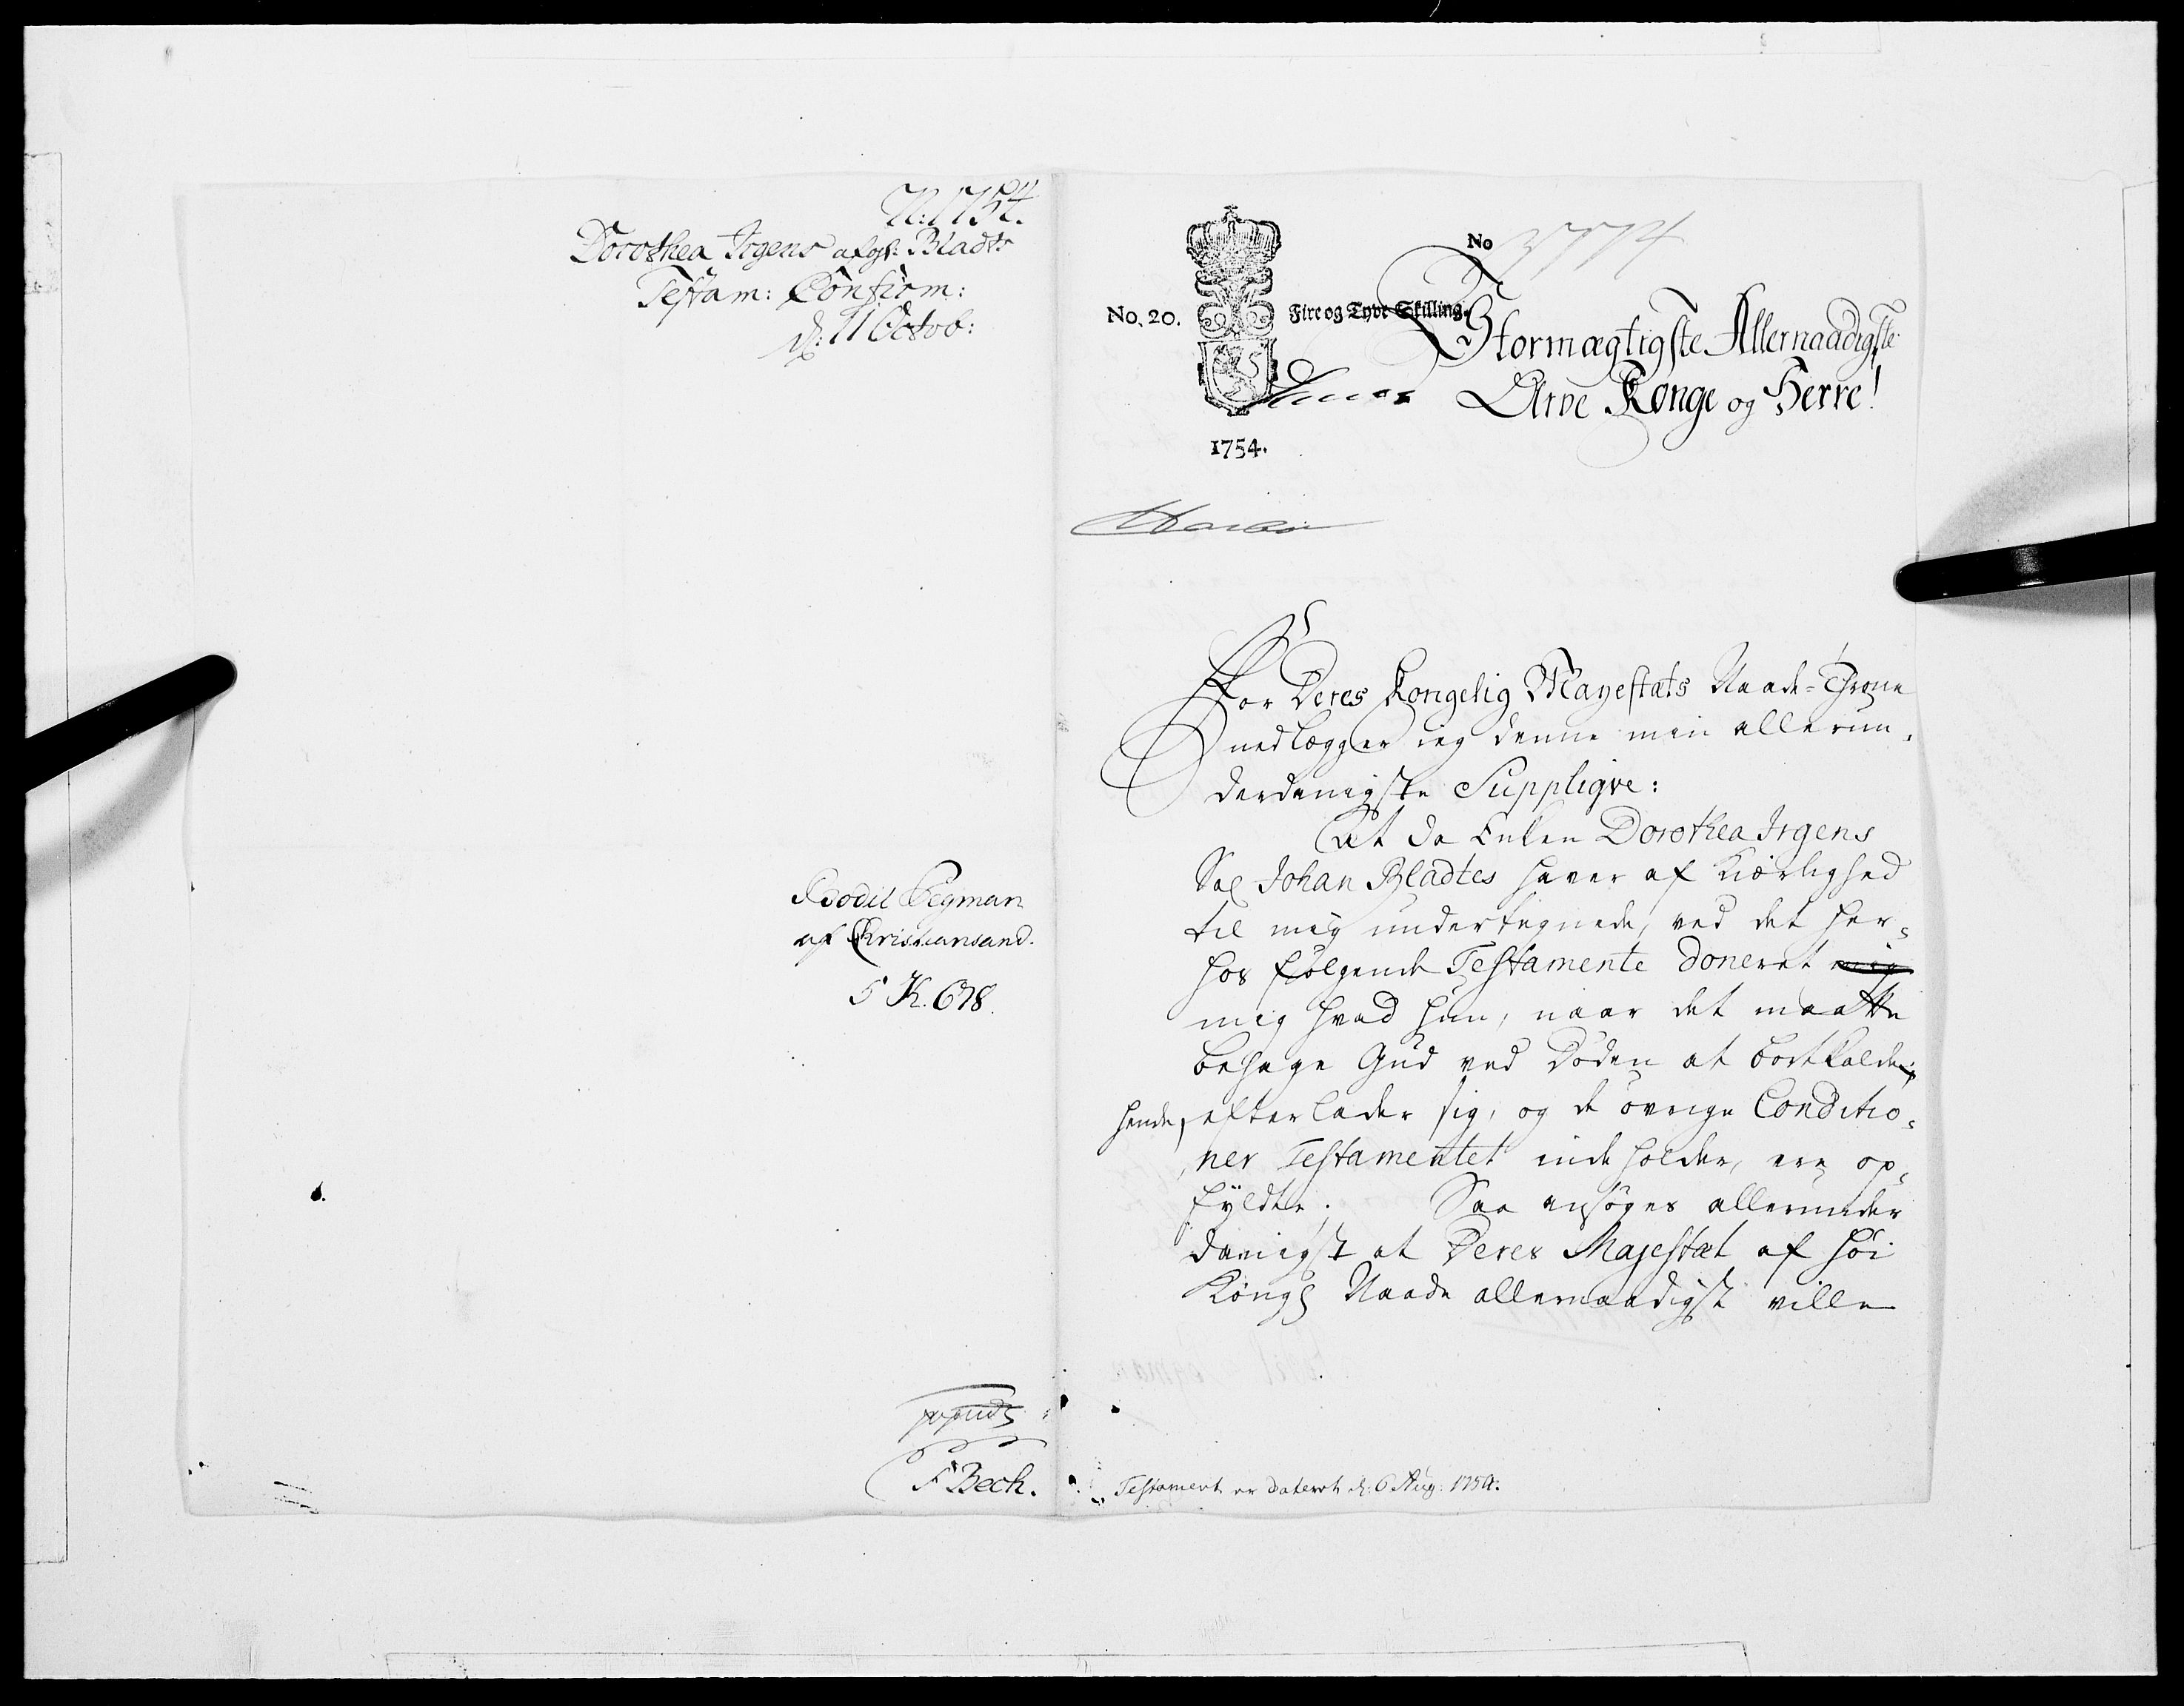 N: 1754.
Dorothea Irgens afg: Bladts
Testam: Confirm:
d: 11 Octob:
Bodil Segman
af Christiansand.
5 K. 678.
F Bech.
No 3774
No. 20. Fire og Tyve Skilling.
Stormægtigste Allernaadigste
Arve Konge og Herre!
1754.
For Deres Kongelig Mayestæts Naade-Throne
nedlægger ieg denne min allerun-
derdanigste Suppliqve:
At da Enken Dorothea Irgens
Sal Johan Bladtes haver af Kiærlighed
til mig undertegnede, ved det her-
hos følgende Testamente doneret mig
mig hvad hun, naar det maatte
behage Gud ved Døden at bortkalde
hende, efterlader sig, og de øvrige Conditio-
ner Testamentet inde holder, ere op-
fyldte. Saa ansøges allerunder
danigst at Deres Majestæt af høi
Kongl Naade allernaadigst ville
Testament er dateret d: 6 Aug: 1754.